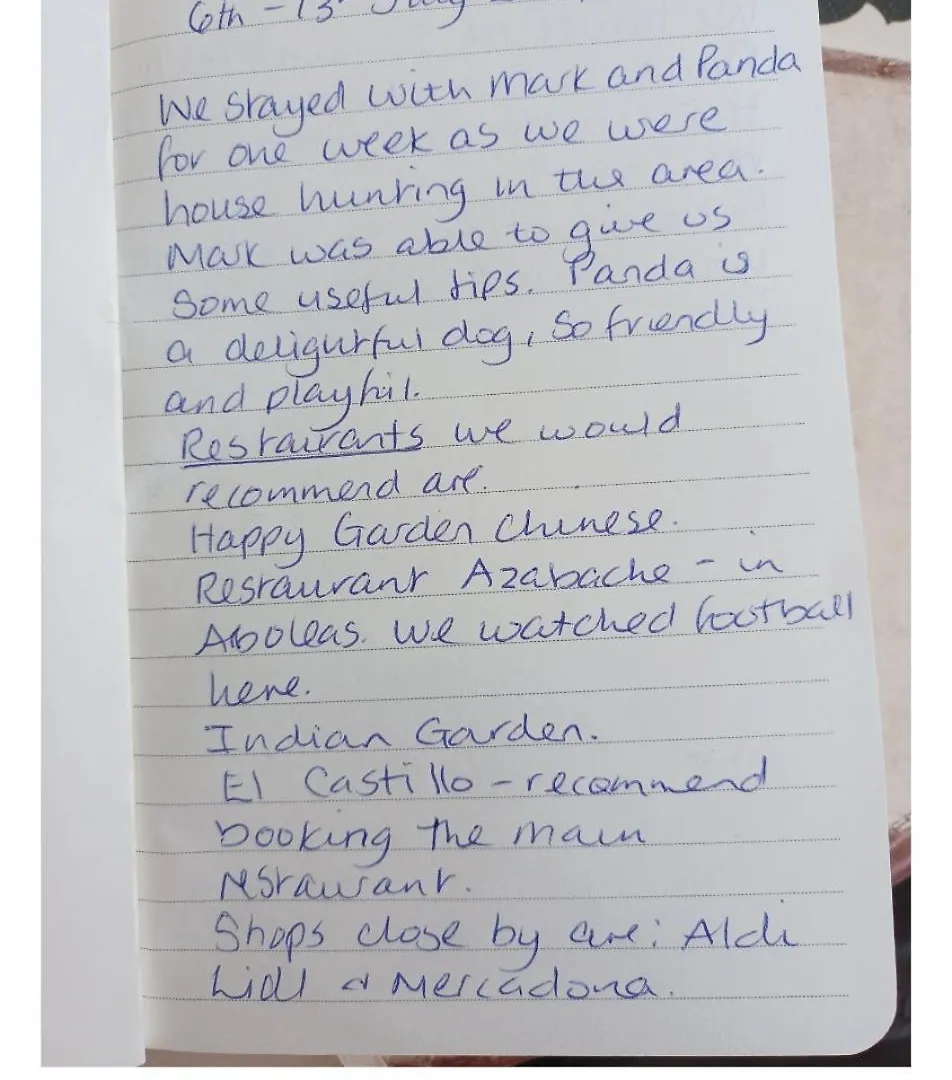 6th - 13
We stayed with Mark and Panda
for one week as we were
house hunting in the area.
Mark was able to give us
some useful tips. Panda is
a delightful dog, so friendly
and playful.
Restaurants we would
recommend are.
Happy Garden Chinese.
Restaurant Azabache - in
Aboleas. We watched football
here.
Indian Garden.
El Castillo - recommend
booking the main
restaurant.
Shops close by are: Aldi
Lidl & Mercadona.